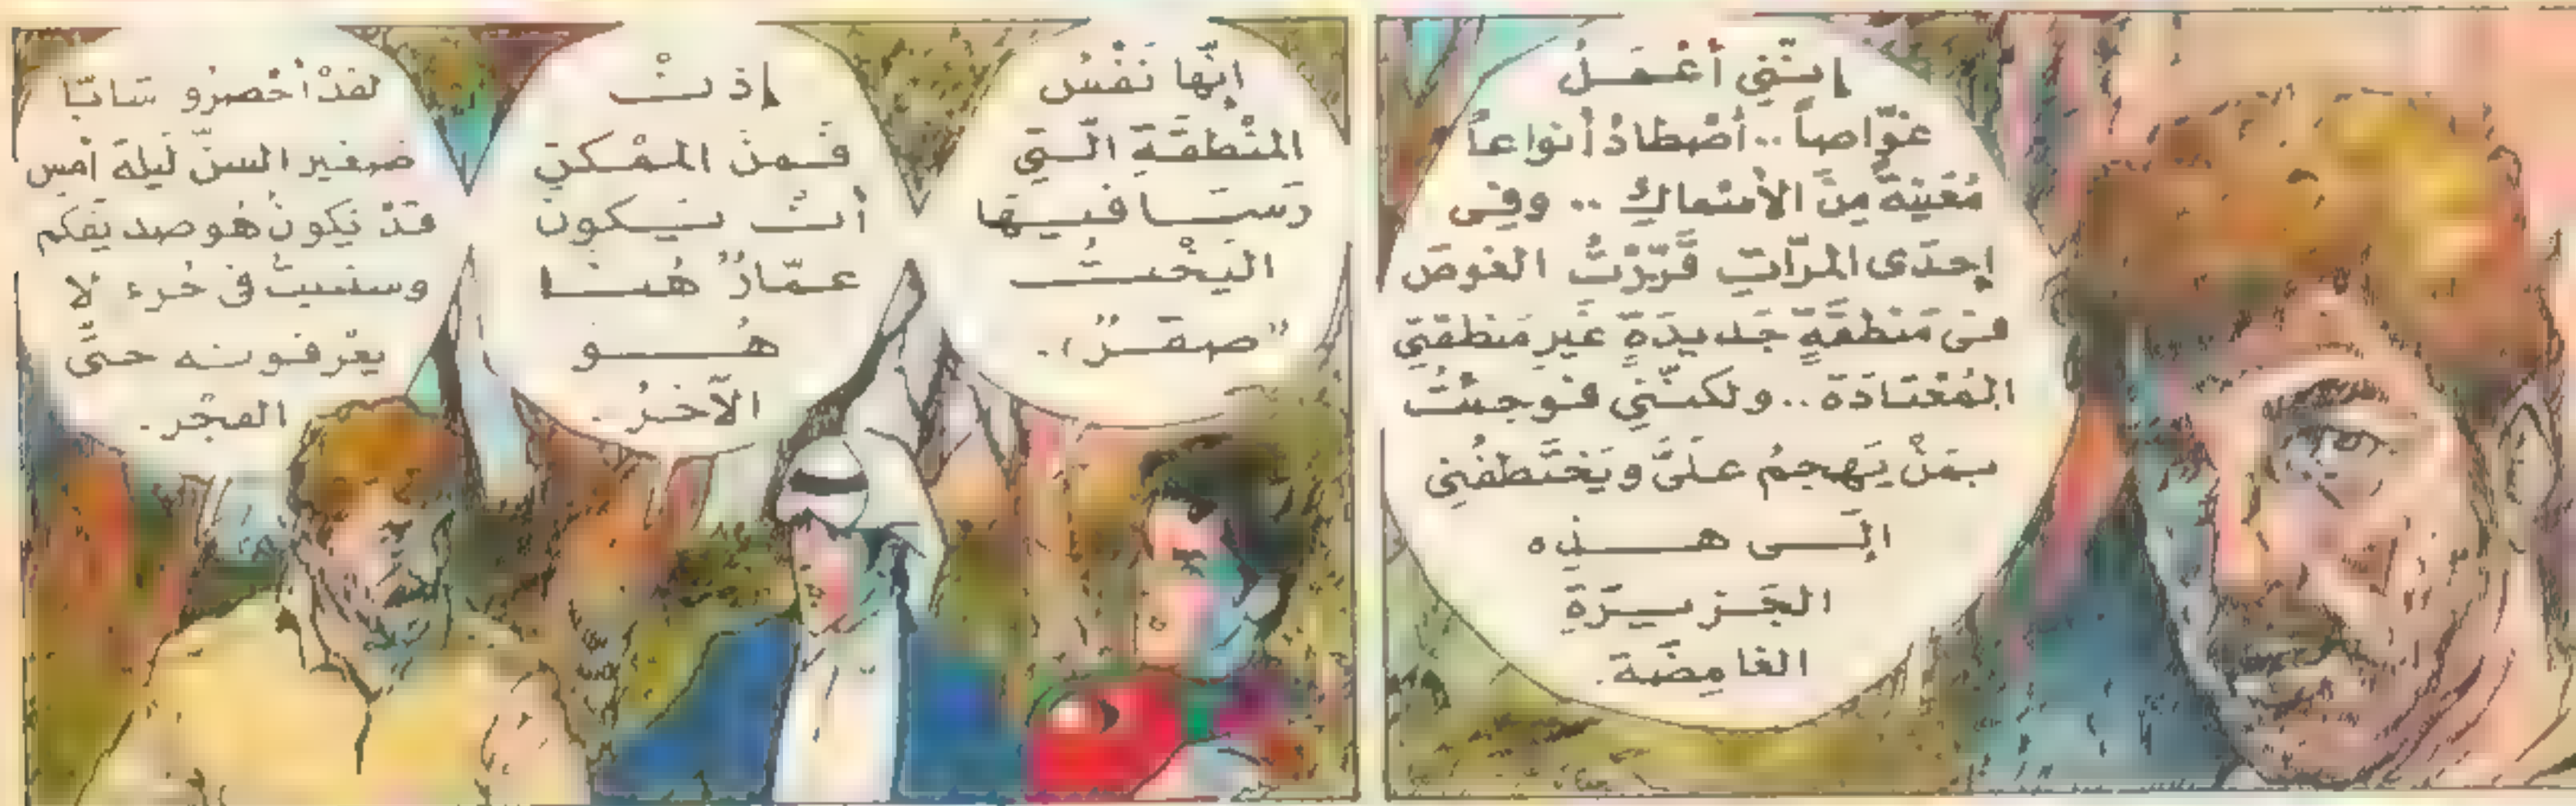 إنّني أعْمَلُ
غوّاصاً..أصْطادُ أنواعاً
مُعَيّنةً مِنَ الأسْماكِ .. وفي
إحدَى المرّاتِ قَرّرْتُ الغوصَ
في مَنطقَةٍ جَديدَةٍ غَيرِ مَنطقَتي
المُعْتادَةِ..ولكنّني فوجئْتُ
بمَنْ يَهجمُ علَيَّ ويَخْتَطفُني
إلَى هذِه
الجَزيرَةِ
الغامِضَة.
انّها نَفْسُ
المنْطقَةِ الّتي
رَسَا فيها
اليَخْتُ
"صقرُ".
إذنْ
فَمنَ الممْكنِ
أنْ يَكونَ
عمّارُ هُنا
هُو
الآخرُ.
لقدْ أحْضرُو شابّا
صغير السنّ ليلة أمس
قدْ يكونُ هُو صديقكم
وسيبيتُ في جُزء لا
يعْرفونه حتَّى
الفجْر.